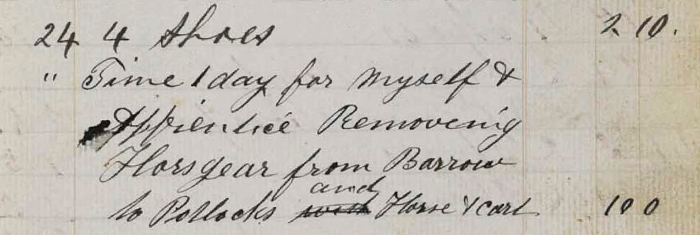 24 4 Shoes 2 10.
" Time 1 day for myself &
Apprentice Removeing
Horsgear from Barrow
and
to Pollocks with Horse & cart 1 0 0